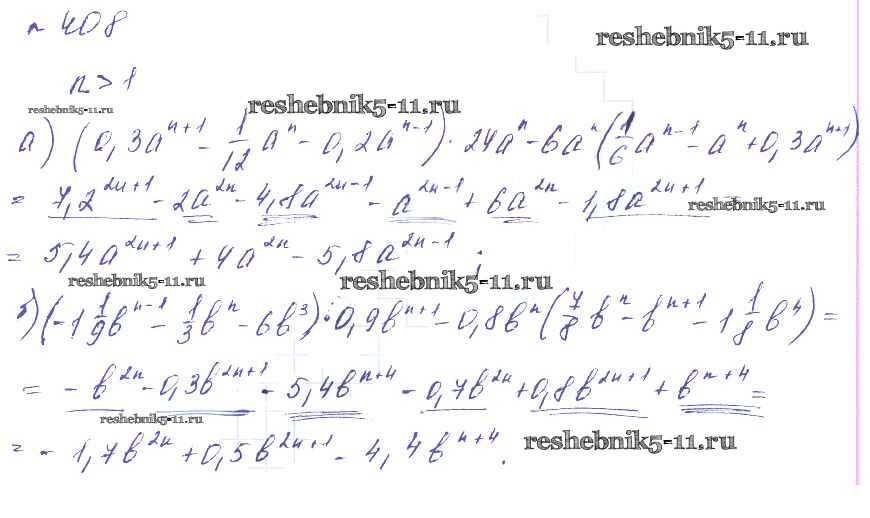 № 408
reshebnik5-11.ru
n > 1
reshebnik5-11.ru reshebnik5-11.ru
а) (0,3a^{n+1} - \frac{1}{12}a^n - 0,2a^{n-1}) · 24a^n - 6a^n(\frac{1}{6}a^{n-1} - a^n + 0,3a^{n+1})
= 7,2^{2n+1} - 2a^{2n} - 4,8a^{2n-1} - a^{2n-1} + 6a^{2n} - 1,8a^{2n+1} =
reshebnik5-11.ru
= 5,4a^{2n+1} + 4a^{2n} - 5,8a^{2n-1}.
reshebnik5-11.ru reshebnik5-11.ru
б) (-1\frac{1}{9}b^{n-1} - \frac{1}{3}b^n - 6b^3) · 0,9b^{n+1} - 0,8b^n(\frac{7}{8}b^n - b^{n+1} - 1\frac{1}{8}b^4) =
= -b^{2n} - 0,3b^{2n+1} - 5,4b^{n+4} - 0,7b^{2n} + 0,8b^{2n+1} + b^{n+4} =
reshebnik5-11.ru
= -1,7b^{2n} + 0,5b^{2n+1} - 4,4b^{n+4}.
reshebnik5-11.ru